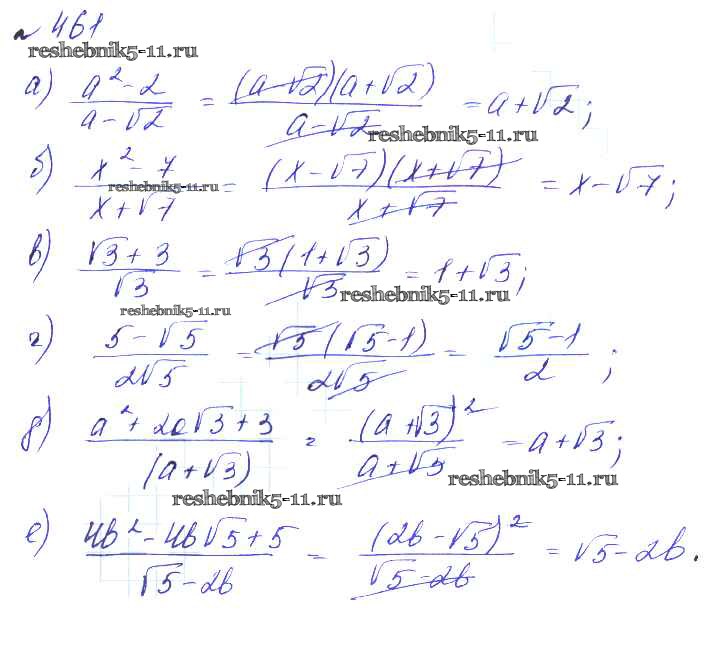 № 461
reshebnik5-11.ru
а) (a² - 2)/(a - √2) = ((a - √2)(a + √2))/(a - √2) = a + √2;
reshebnik5-11.ru
б) (x² - 7)/(x + √7) = ((x - √7)(x + √7))/(x + √7) = x - √7;
reshebnik5-11.ru
в) (√3 + 3)/√3 = (√3(1 + √3))/√3 = 1 + √3;
reshebnik5-11.ru
reshebnik5-11.ru
г) (5 - √5)/(2√5) = (√5(√5 - 1))/(2√5) = (√5 - 1)/2;
д) (a² + 2a√3 + 3)/(a + √3) = (a + √3)²/(a + √3) = a + √3;
reshebnik5-11.ru
reshebnik5-11.ru
е) (4b² - 4b√5 + 5)/(√5 - 2b) = (2b - √5)²/(√5 - 2b) = √5 - 2b.